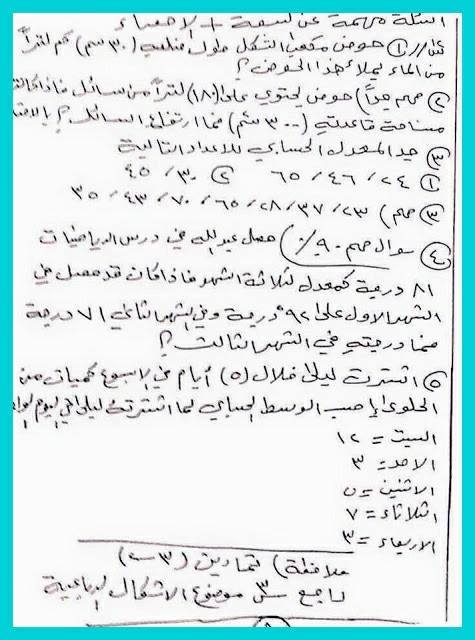 اسئلة مهمة عن السعة + الإحصاء
س١// ① حوض مكعب الشكل طول ضلعه (٣٠ سم) كم لتراً
من الماء يملأ هذا الحوض؟
② مهم جداً) حوض يحتوي على (١٨٠) لتراً من سائل فاذا كانت
مساحة قاعدته (٣٠٠٠ سم) فما ارتفاع السائل؟
③ جد المعدل الحسابي للاعداد التالية
① ٢٤ / ٤٦ / ٦٥ ② ٣٠ / ٤٥
③ مهم) ٢٣ / ٣٧ / ٢٨ / ٦٥ / ٧٠ / ٤٣ / ٣٥
④ سؤال مهم ٩٠٪) حصل عبدالله في درس الرياضيات
٨١ درجة كمعدل لثلاثة اشهر فاذا كان قد حصل في
الشهر الاول على ٩٢ درجة وفي الشهر الثاني ٧١ درجة
فما درجته في الشهر الثالث؟
⑤ اشترت ليلى خلال (٥) أيام في الاسبوع كميات من
الحلوى احسب الوسط الحسابي لما اشترته ليلى في اليوم الواحد
السبت = ١٢
الاحد = ٣
الاثنين = ٥
الثلاثاء = ٧
الاربعاء = ٣
ملاحظة) تمارين (٣-٢)
راجع موضوع الاشكال الرباعية